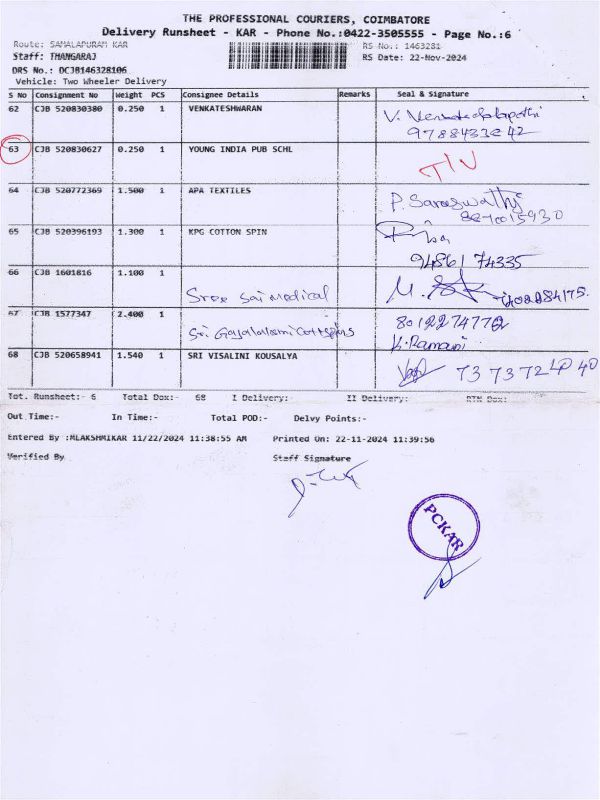 THE PROFESSIONAL COURIERS, COIMBATORE
Delivery Runsheet - KAR - Phone No.:0422-3505555 - Page No.:6
Route: SAMALAPURAM KAR RS No.: 1463281
Staff: THANGARAJ RS Date: 22-Nov-2024
DRS No.: DCJB146328106
Vehicle: Two Wheeler Delivery
S No Consignment No Weight PCS Consignee Details Remarks Seal & Signature
62 CJB 520830380 0.250 1 VENKATESHWARAN
9788433242
63 CJB 520830627 0.250 1 YOUNG INDIA PUB SCHL
64 CJB 520772369 1.500 1 APA TEXTILES P. Saraswathi
65 CJB 520396193 1.300 1 KPG COTTON SPIN
94861 74335
66 CJB 1601816 1.100 1
Sree Sai Medical
67 CJB 1577347 2.400 1 8012274772
K. Ramani
68 CJB 520658941 1.540 1 SRI VISALINI KOUSALYA
73 73 72 40 40
Tot. Runsheet:- 6 Total Dox:- 68 I Delivery: II Delivery: RTN Dox:
Out Time:- In Time:- Total POD:- Delvy Points:-
Entered By :MLAKSHMIKAR 11/22/2024 11:38:55 AM Printed On: 22-11-2024 11:39:56
Verified By Staff Signature
PCKAR